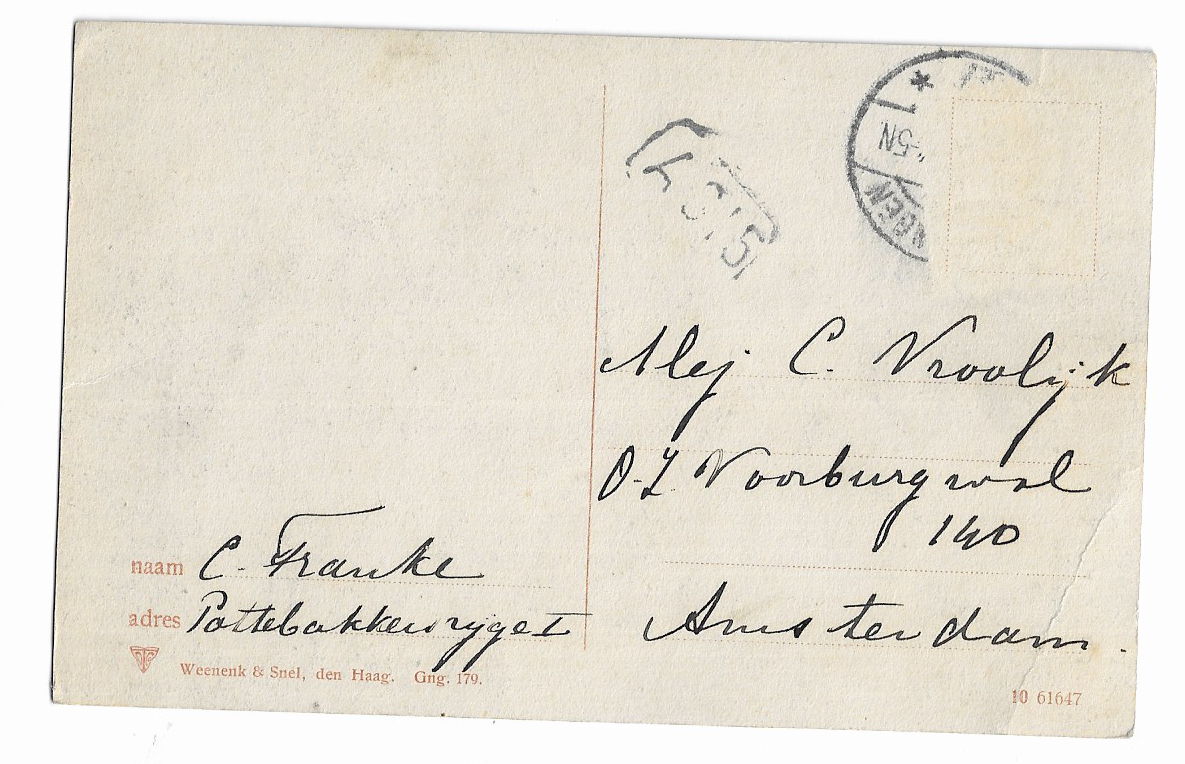 -5N
Mej C. Vroolijk
O.Z. Voorburgwal
140
Amsterdam.
naam C. Franke
adres Pottebakkersrijge I
Weenenk & Snel, den Haag. Gng. 179.
10 61647